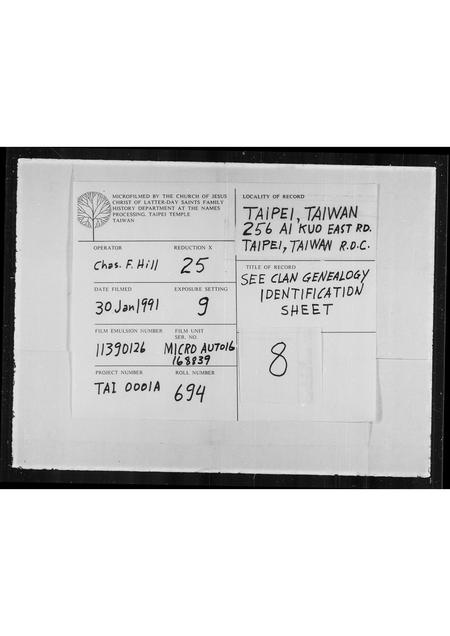 MICROFILMED BY THE CHURCH OF JESUS
CHRIST OF LATTER-DAY SAINTS FAMILY
HISTORY DEPARTMENT AT THE NAMES
PROCESSING, TAIPEI TEMPLE
TAIWAN
LOCALITY OF RECORD
TAIPEI, TAIWAN
256 AI KUO EAST RD.
TAIPEI, TAIWAN R.O.C.
OPERATOR
Chas. F. Hill
REDUCTION X
25
TITLE OF RECORD
SEE CLAN GENEALOGY
IDENTIFICATION
SHEET
DATE FILMED
30 Jan 1991
EXPOSURE SETTING
9
FILM EMULSION NUMBER
11390126
FILM UNIT
SER. NO.
MICRO AUTO16
168839
8
PROJECT NUMBER
TAI 0001A
ROLL NUMBER
694